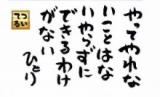 やってやれな
いことはな
いやらずに
できるわけ
がない
ひとり
つい
てる